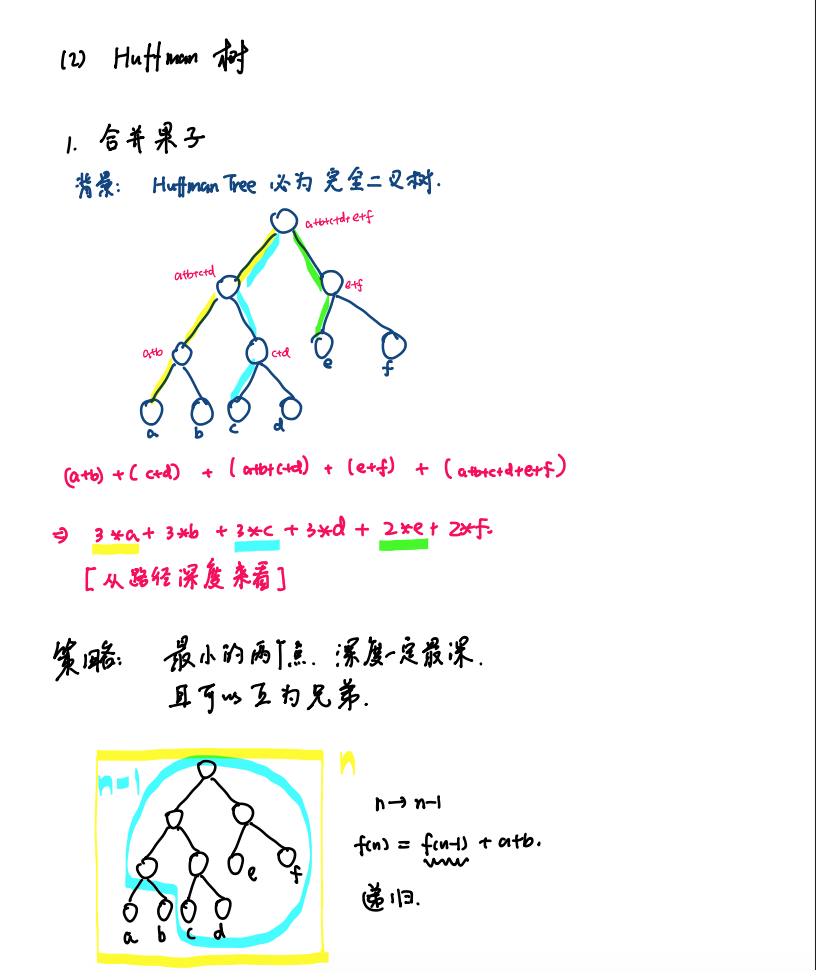 (2) Huffman 树
1. 合并果子
背景: Huffman Tree 必为 完全二叉树.
a+b+c+d+e+f
a+b+c+d
e+f
a+b
c+d
e
f
a
b
c
d
(a+b) + (c+d) + (a+b+c+d) + (e+f) + (a+b+c+d+e+f)
⇒ 3*a + 3*b + 3*c + 3*d + 2*e + 2*f.
[从路径深度来看]
策略: 最小的两个点. 深度一定最深.
且可以互为兄弟.
n
n-1
n→n-1
f(n) = f(n-1) + a+b.
e
f
递归.
a
b
c
d